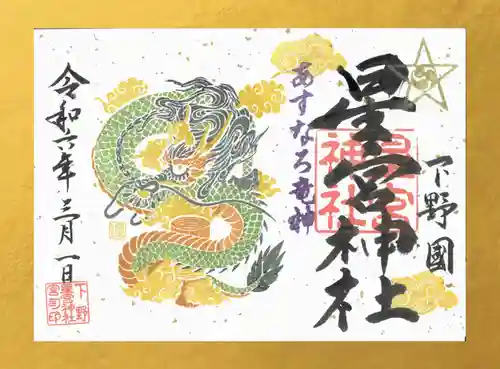 下野國
星宮神社
あすなろ竜神
令和六年三月一日
星宮神社